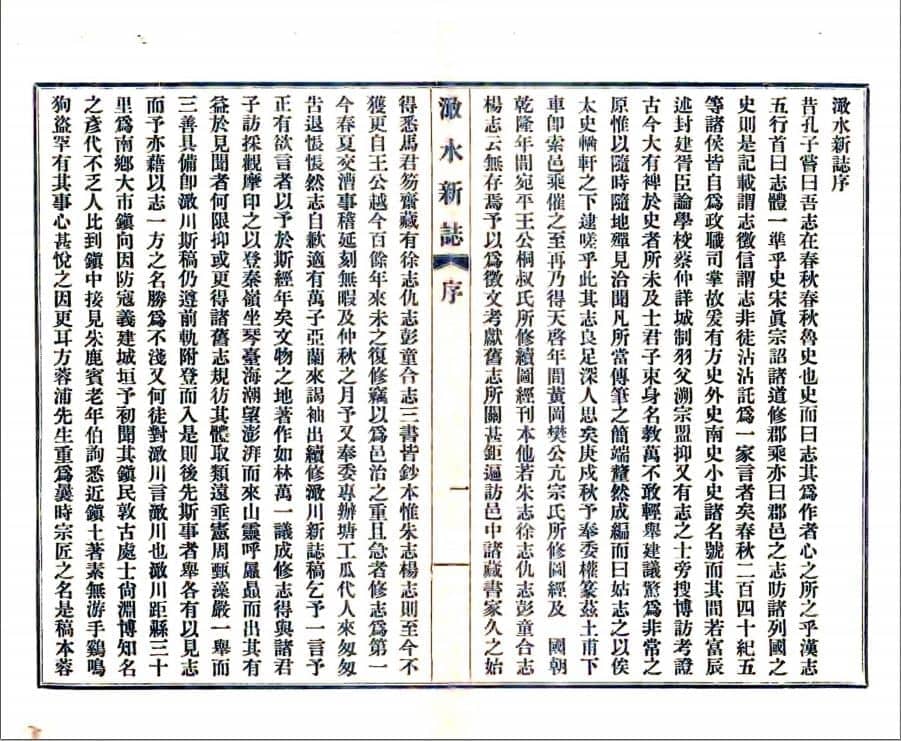 澉水新誌序
昔孔子嘗曰吾志在春秋春秋魯史也史而曰志其爲作者心之所之乎漢志
五行首曰志體一準乎史宋眞宗詔諸道修郡乘亦曰郡邑之志昉諸列國之
史則是記載謂志徵信謂志非徒沾沾託爲一家言者矣春秋二百四十紀五
等諸侯皆自爲政職司掌故爰有方史外史南史小史諸名號而其間若富辰
述封建胥臣論學校蔡仲詳城制羽父溯宗盟抑又有志之士旁搜博訪考證
古今大有裨於史者所未及士君子束身名敎萬不敢輕舉建議驚爲非常之
原惟以隨時隨地殫見洽聞凡所當傳筆之簡端釐然成編而曰姑志之以俟
太史輶軒之下逮嗟乎此其志良足深人思矣庚戌秋予奉委權篆茲土甫下
車卽索邑乘催之至再乃得天啓年間黃岡樊公亢宗氏所修圖經及　國朝
乾隆年間宛平王公桐叔氏所修續圖經刊本他若朱志徐志仇志彭童合志
楊志云無存焉予以爲徵文考獻舊志所關甚鉅遍訪邑中諸藏書家久之始
澉水新誌 序 一
得悉馬君笏齋藏有徐志仇志彭童合志三書皆鈔本惟朱志楊志則至今不
獲更自王公越今百餘年來未之復修竊以爲邑治之重且急者修志爲第一
今春夏交漕事稽延刻無暇及仲秋之月予又奉委專辦塘工瓜代人來匆匆
告退悵悵然志自歉適有萬子亞蘭來謁袖出續修澉川新誌稿乞予一言予
正有欲言者以予於斯經年矣文物之地著作如林萬一議成修志得與諸君
子訪採觀摩印之以登秦嶺坐琴臺海潮望澎湃而來山靈呼屭贔而出其有
益於見聞者何限抑或更得諸舊志規彷其體取類遠垂憲周甄藻嚴一舉而
三善具備卽澉川斯稿仍遵前軌附登而入是則後先斯事者舉各有以見志
而予亦藉以志一方之名勝爲不淺又何徒對澉川言澉川也澉川距縣三十
里爲南鄉大市鎭向因防寇義建城垣予初聞其鎭民敦古處士尙淵博知名
之彥代不乏人比到鎭中接見朱鹿賓老年伯詢悉近鎭土著素無游手鷄鳴
狗盜罕有其事心甚悅之因更耳方蓉浦先生重爲曩時宗匠之名是稿本蓉